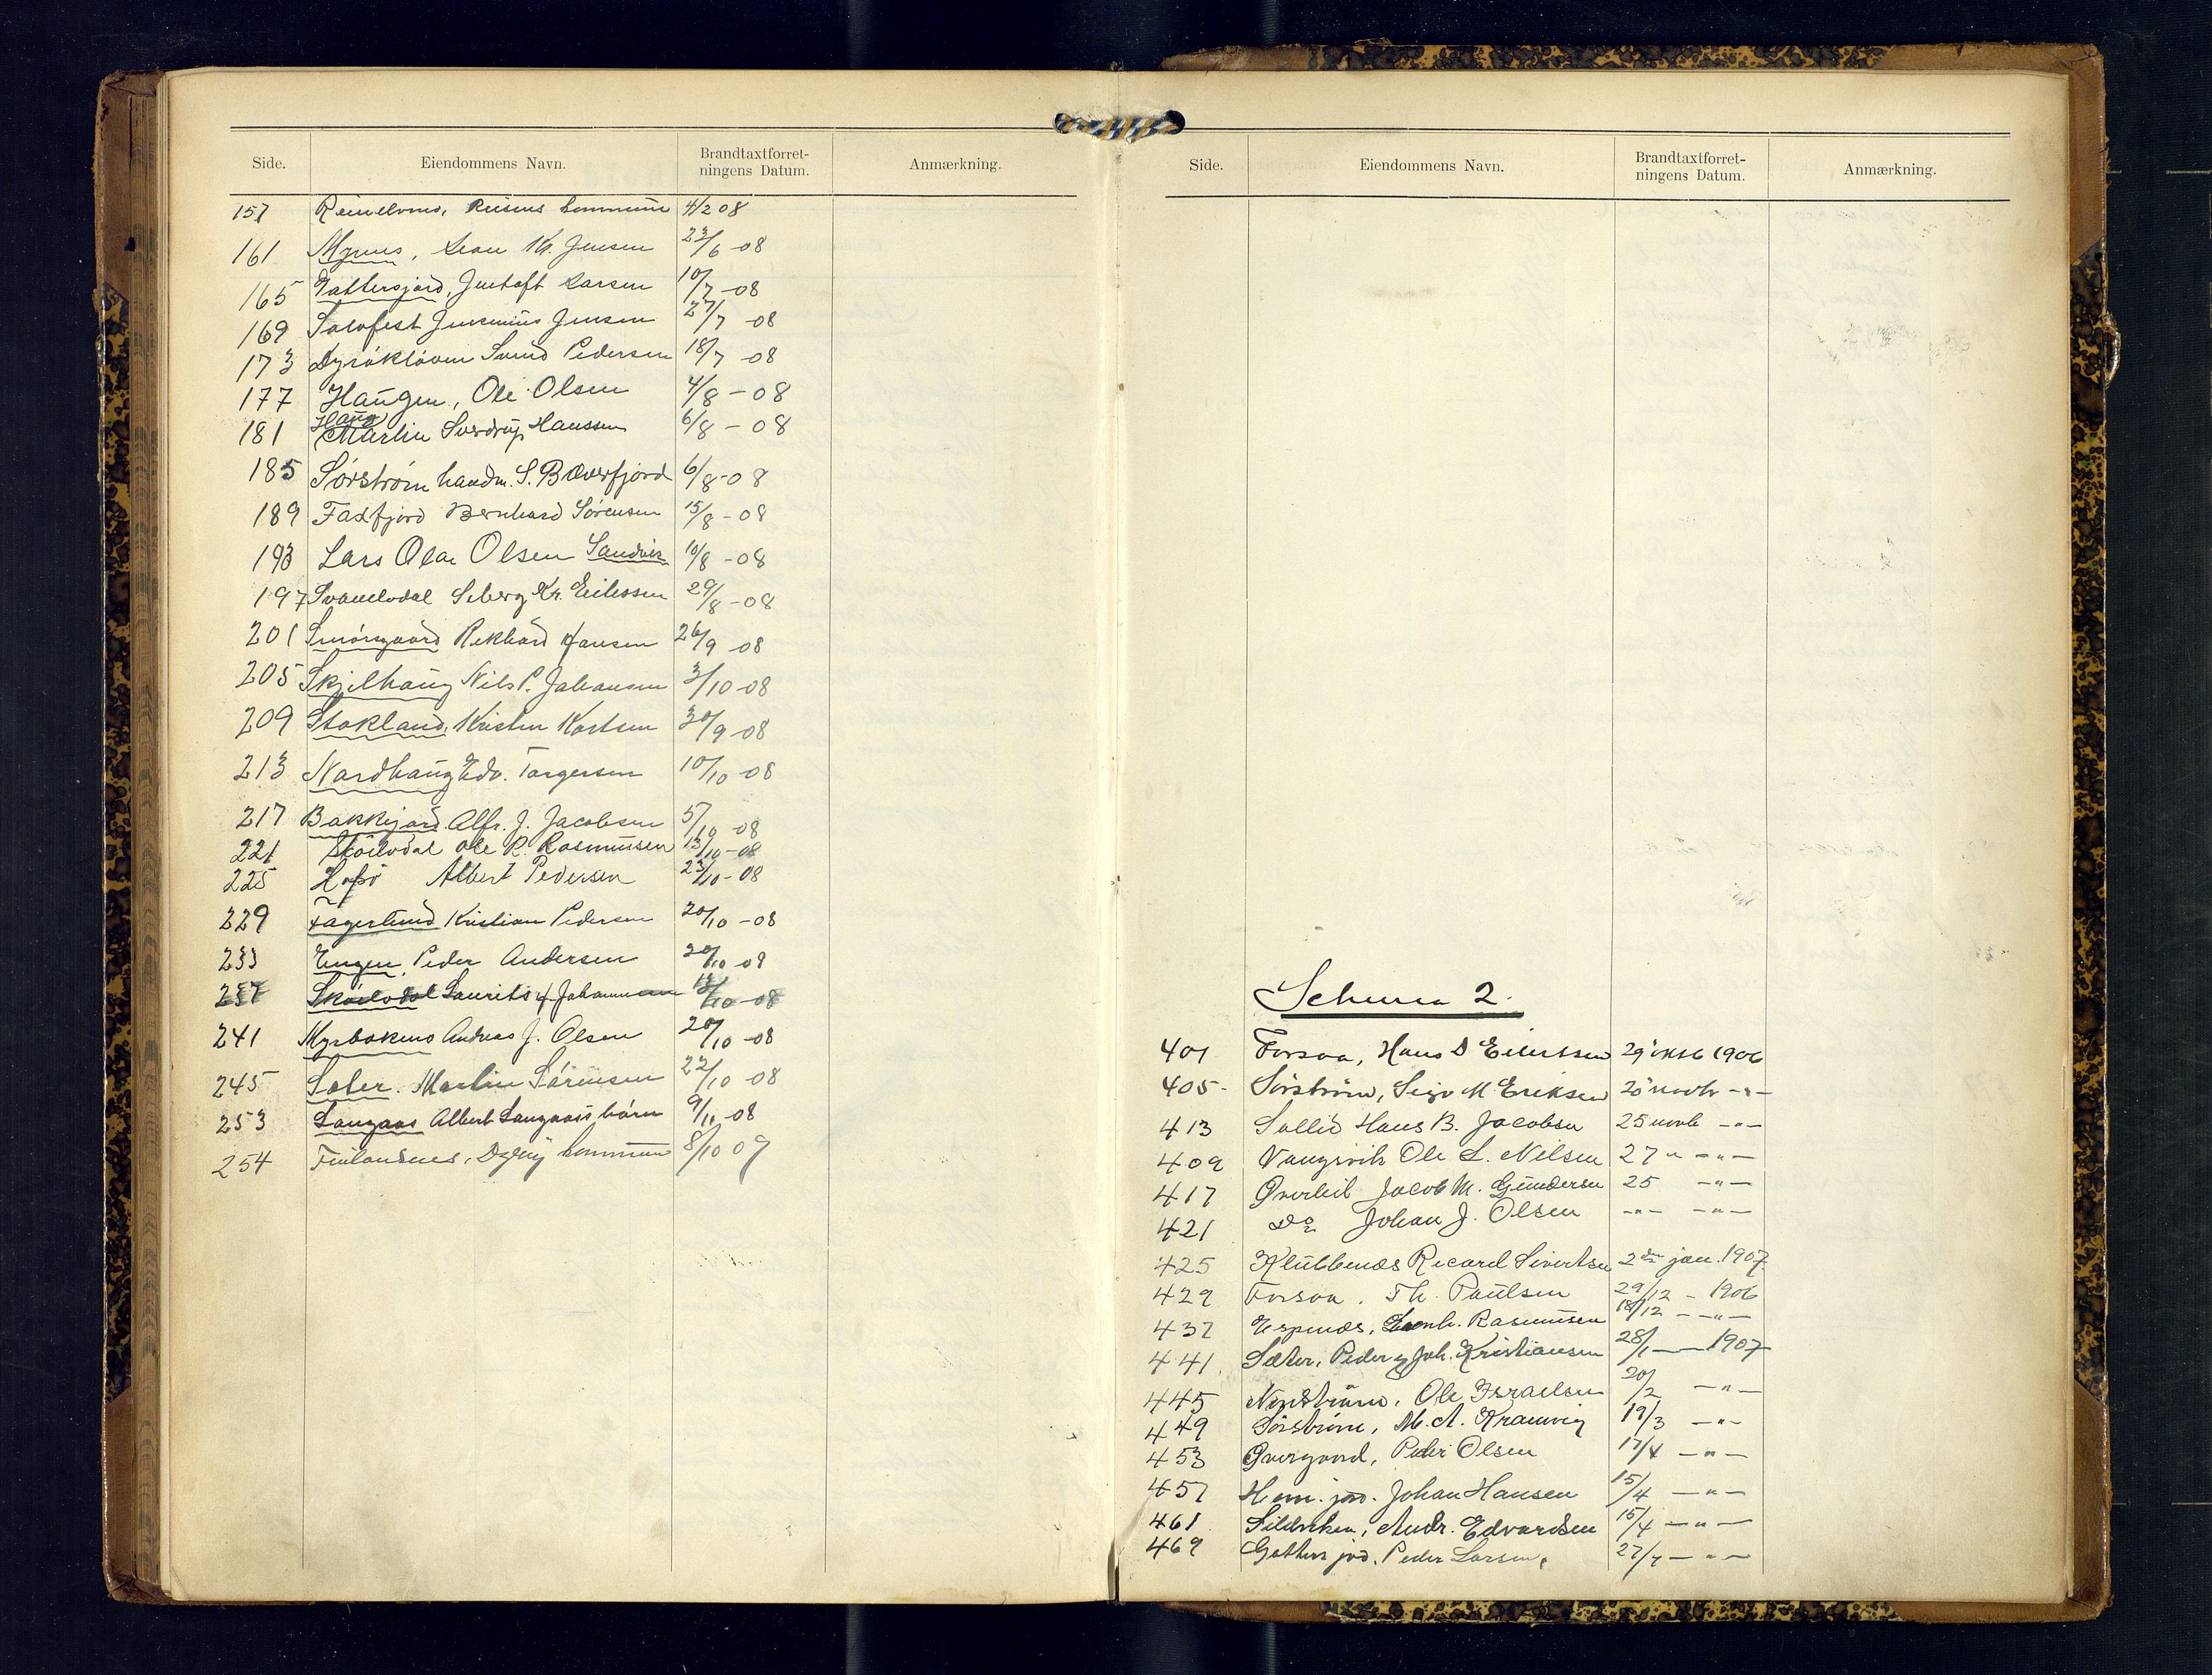 Side. Eiendommens Navn. Brandtaxtforret-ningens Datum. Anmærkning.
157 Reinelvmo, Reisens kommune 4/2 08
161 Mynes, Sean Kr. Jensen 23/6 - 08
165 Gattersjord, Gustaft Larsen 10/7 - 08
169 Solvfest Jensenius Jensen 27/7 08
173 Dyröklöven Svend Pedersen 18/7 - 08
177 Haugen, Ole Olsen 4/8 - 08
Haug
181 Martin Sverdrup Hanssen 6/8 - 08
185 Sörström handm. S. B Overfjord 6/8 - 08
189 Faxfjord Bernhard Sörensen 15/8 - 08
193 Lars Olai Olsen Sandvik 10/8 - 08
197 Svanelvdal Seberg Kr. Eilessen 29/8 - 08
201 Smörsgaard Rekhard Hansen 26/9 08
205 Skjelhaug Nils P. Johansen 3/10 - 08
209 Stokland, Kristen Kortsen 30/9 - 08
213 Nordhaug Edv. Torgersen 10/10 - 08
217 Bakkejord Alfr. J. Jacobsen 5/10 08
221 Sköelvdal Ole R. Rasmussen 13/10 - 08
225 Hofsö Albert Pedersen 23/10 - 08
229 Fagerlund Kristian Pedersen 20/10 - 08
233 Engen, Peder Andersen 20/10 08
237 Sköelvdal Laurits J. Johannesen 13/10 - 08
241 Myrbakmo Andreas J. Olsen 20/10 - 08
245 Sæter. Martin Sörensen 22/10 - 08
253 Langaas Albert Langaas's börn 9/11 - 08
254 Finlandnes, Dyröy kommune 8/10 09
Side. Eiendommens Navn. Brandtaxtforret-ningens Datum. Anmærkning.
Schema 2.
401 Forsaa, Hans D Eilertsen 29' oktb 1906
405 - Sörström, Seiv M Eriksen 20' novbr - " -
413 Sollid Hans B. Jacobsen 25 novb - " -
409 Vangsvik Ole L. Nilsen 27 " - " -
417 Överlid Jacob M. Gundersen 25 - " -
421 Do Johan J. Olsen - " - - " -
425 Klubbenes Recard Sivertsen 2den jan. 1907
429 Forsaa. Th. Paulsen 29/12 - 1906
437 Espenes, Leonh. Rasmussen 18/12 - - " -
441 Sæter, Peder og Joh. Kristiansen 28/1 - 1907
445 Nordström, Ole Israelsen 20/2 - " -
449 Sörström, M. A. Kramvig 19/3 - " -
453 Övergaard, Peder Olsen 17/4 - " -
457 Hem. jord. Johan Hansen 15/4 - " -
461 Sildviken, Andr. Edvardsen 15/4 - " -
469 Gattersjord. Peder Larsen, 27/7 - " -